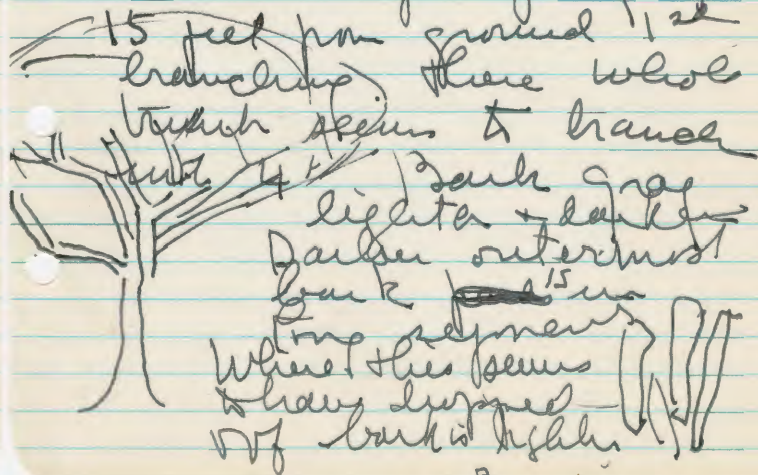 15 feet from ground 1st
branching there whole
trunk seems to branch
4
Bark gray
lighter + darker
Darker outermost
bark is in
long segments
Where this seems
to have dropped
off bark is lighter